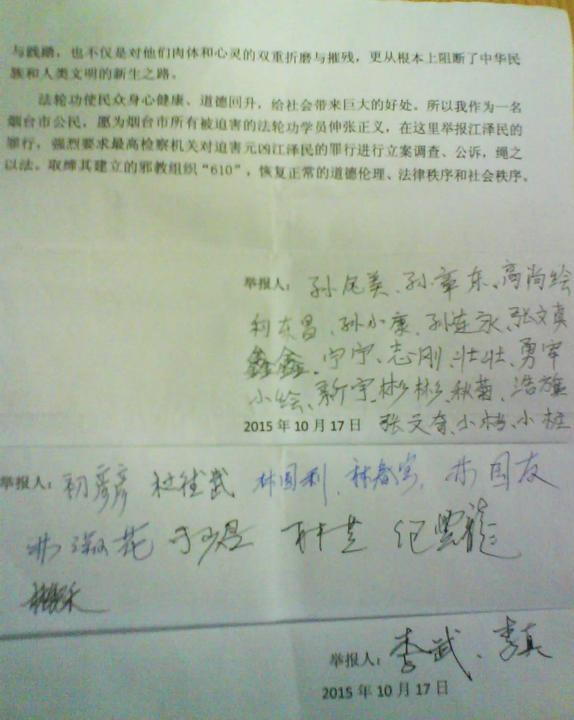 与践踏，也不仅是对他们肉体和心灵的双重折磨与摧残，更从根本上阻断了中华民
族和人类文明的新生之路。
法轮功使民众身心健康、道德回升，给社会带来巨大的好处。所以我作为一名
烟台市公民，愿为烟台市所有被迫害的法轮功学员伸张正义，在这里举报江泽民的
罪行，强烈要求最高检察机关对迫害元凶江泽民的罪行进行立案调查、公诉，绳之
以法。取缔其建立的邪教组织“610”，恢复正常的道德伦理、法律秩序和社会秩序。
举报人： 孙 美、孙 东、高尚绘
东昌、孙小康、孙连永、张文真
鑫鑫、宁宁、志刚、壮壮、勇军
小绘、新宇、彬彬、秋菊、浩
2015 年 10 月 17 日 张文奇、小 、小
举报人： 初彦彦 武 林国利、林春 国友
淑花 林芝 纪云龙
举报人： 李武、李真
2015 年 10 月 17 日